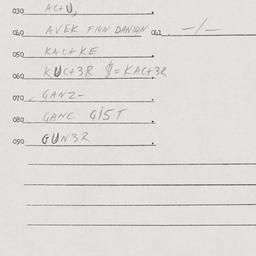 030 ACTU,
040 AVEK FIAN DANIAN 041 -/-
050 KACTKE
060 KUCT3R $=KACT3R
070 GANZ-
080 GANC GIST
090 GUN3R